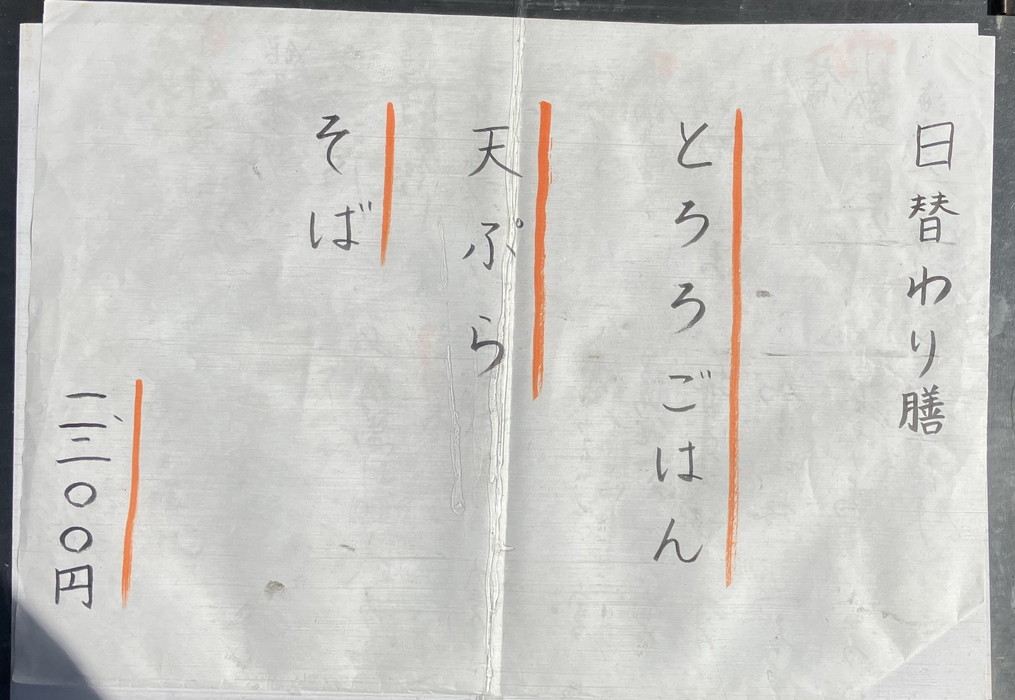 日替わり膳
とろろごはん
天ぷら
そば
二、二〇〇円